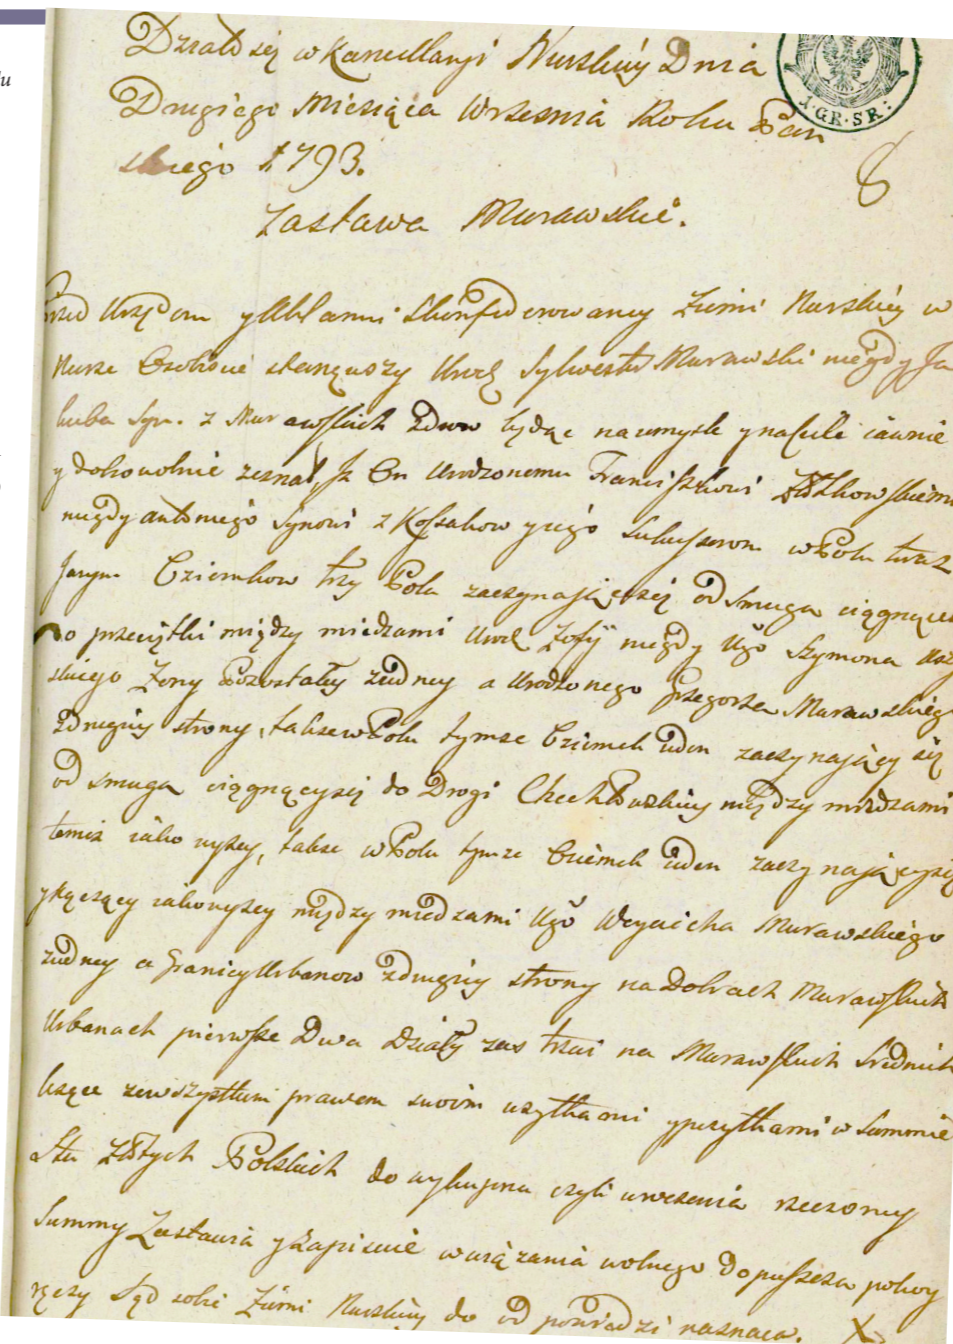 Działo się w Kancellaryi Nurskiey Dnia
Drugiego Miesiąca Września Roku Pan
skiego 1793.
8
Zastawa Murawskie.
Przed Urzędem y Aktami Skonfederowaney Ziemi Nurskiey w
Nurze Osobiście stanąwszy Urodz Sylwester Murawski niegdy Ja
kuba Syn. z Murawskich Zdrow będąc na umyśle y na ciele iawnie
y dobrowolnie zeznał, Jż On Urodzonemu Franciszkowi
niegdy Antoniego Synowi z Kossakow y iego Sukcessorom w Polu teraz
Jarym Ozimkow trzy Pola zaczynaiące się od Smuga ciągnące
do przeciętki między miedzami Urod Zofij niegdy Ugo Szymona
skiego Zony Pozostałey z iedney a Urodzonego Grzegorza Murawskiego
z drugiey strony, także w Polu tymże Ozimek ieden zaczynaiący się
od smuga ciągnący się do Drogi między miedzami
temiż iako wyżey, także w Polu tymże Ozimek ieden zaczynaiący się
y kączący iako wyżey między miedzami Ugo Woyciecha Murawskiego
z iedney a Granicy Urbanow z drugiey strony na Dobrach Murawskich
Urbanach pierwsze Dwa Działy zaś trzeci na Murawskich Srednich
leżące ze wszystkim prawem swoim użytkami y pożytkami w Summie
Stu Złotych Polskich do wykupna czyli uwczenia rzeczoney
Summy Zastawia y Zapisuie w wiązania wolnego dopuszcza pokoy
ręczy Sąd sobie Ziemi Nurskiey do odpowiedzi naznacza. X
I·GR·SR: